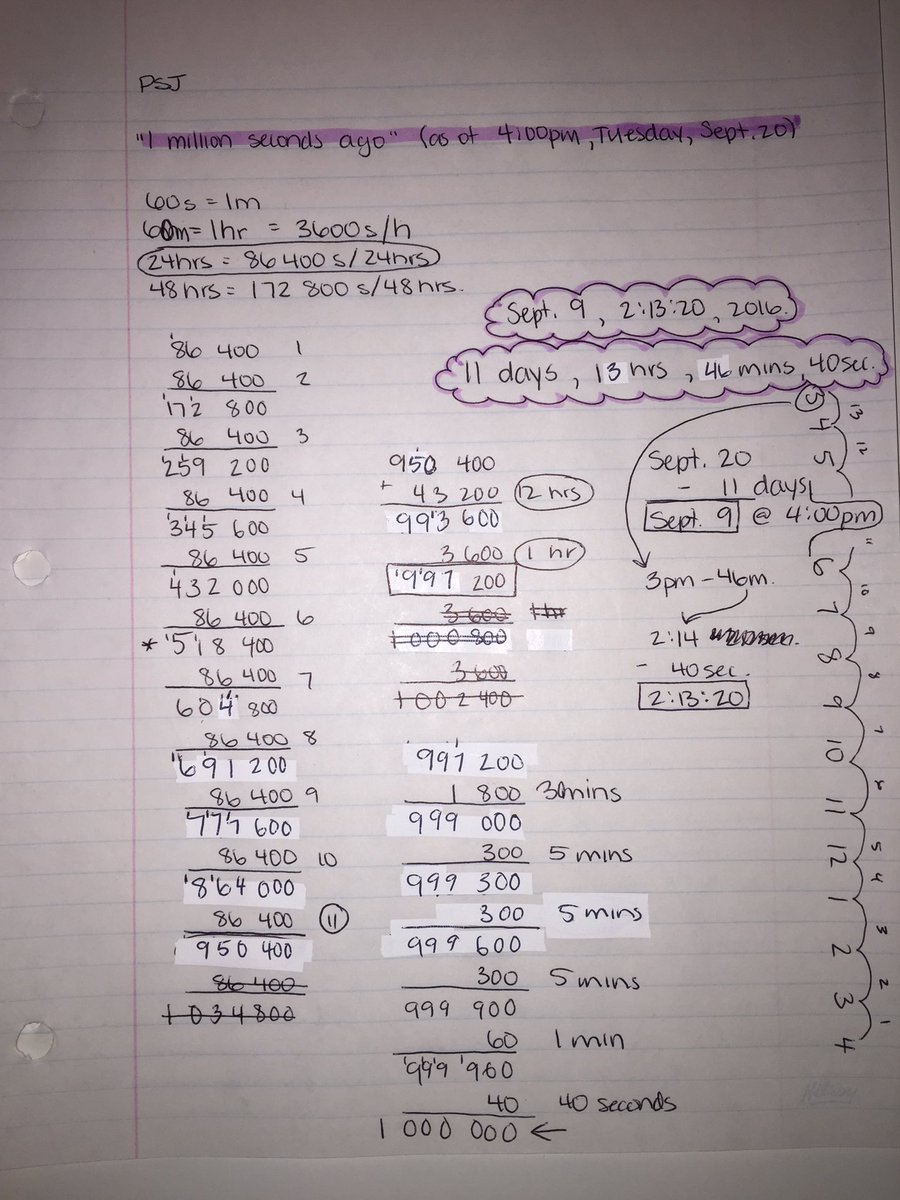 PSJ
"1 million seconds ago" (as of 4:00pm, Tuesday, Sept. 20)
60s = 1m
60m = 1hr = 3600s/h
24hrs = 86 400 s/24hrs
48 hrs = 172 800 s/48 hrs.
Sept. 9, 2:13:20, 2016.
11 days, 13 hrs, 46 mins, 40 sec.
86 400 1
86 400 2
172 800
86 400 3
259 200
86 400 4
345 600
86 400 5
432 000
86 400 6
* 518 400
86 400 7
604 800
86 400 8
691 200
86 400 9
777 600
86 400 10
864 000
86 400 11
950 400
86 400
1 034 800
950 400
+ 43 200 12 hrs
993 600
3 600 1 hr
997 200
3 600 1hr
1 000 800
3 600
1 002 400
997 200
1 800 30mins
999 000
300 5 mins
999 300
300 5 mins
999 600
300 5 mins
999 900
60 1 min
999 960
40 40 seconds
1 000 000 ←
Sept. 20
- 11 days
Sept. 9 @ 4:00pm
3pm - 46m.
2:14
- 40 sec.
2:13:20
3
4
5
6
7
8
9
10
11
12
1
2
3
4
13
12
11
10
9
8
7
6
5
4
3
2
1
Hilroy